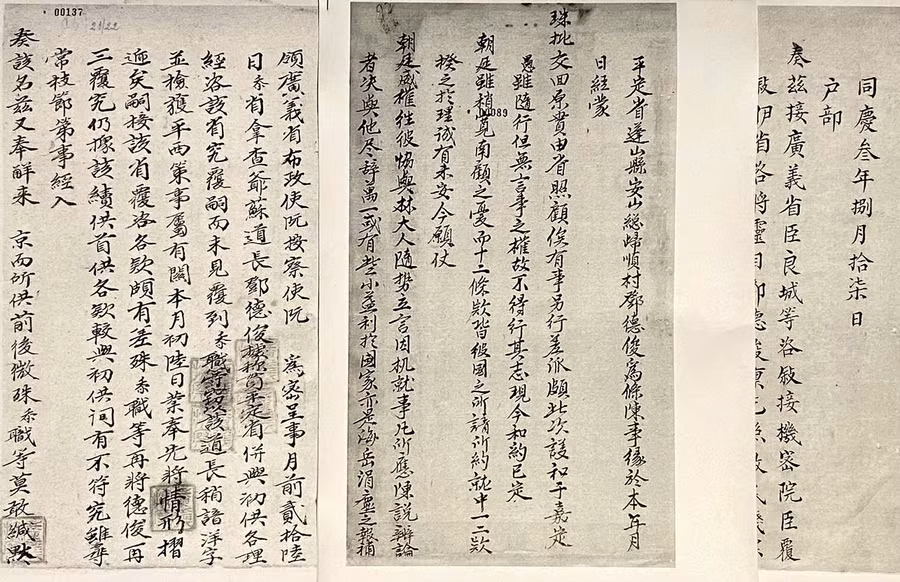 同慶叁年捌月拾柒日
戶部
奏茲接廣義省臣良城等咨敍接機密院臣覆
平定省蓬山縣安山總歸順村鄧德俊爲條陳事緣於本年月
日經蒙
珠批交田原費由省照顧俟有事另行差派頗此次議和于嘉定
愚雖隨行但無言事之權故不得行其志現今和約已定
朝廷雖稍寬南顧之憂而十二條欵皆彼國之所請所約就中一二欵
揆之於理誠有未安今願仗
朝廷威權往彼恊與林大人隨勢立言因机就事凡所應陳說辯論
者决與他尽辞萬一或有些小益利於國家亦是海岳涓塵之報補
00089
00137
領廣義省布政使阮按察使阮 爲密呈事月前貳拾陸
日系有拿查爺蘇道長鄧德俊 平定省併與初供各理
經咨該省究覆嗣而未見覆到系職等 該道長稍諳洋字
並撿獲平西策事屬有關本月初陸日業奉先將情形摺
遞矣嗣接該省覆咨各欵頗有差殊系職等再將德俊再
三覆究仍據該續供首供各欵較與初供詞有不符究雖尋
常枝節第事經入
奏該名茲又奉觧來 京而所供前後微殊系職等莫敢緘默